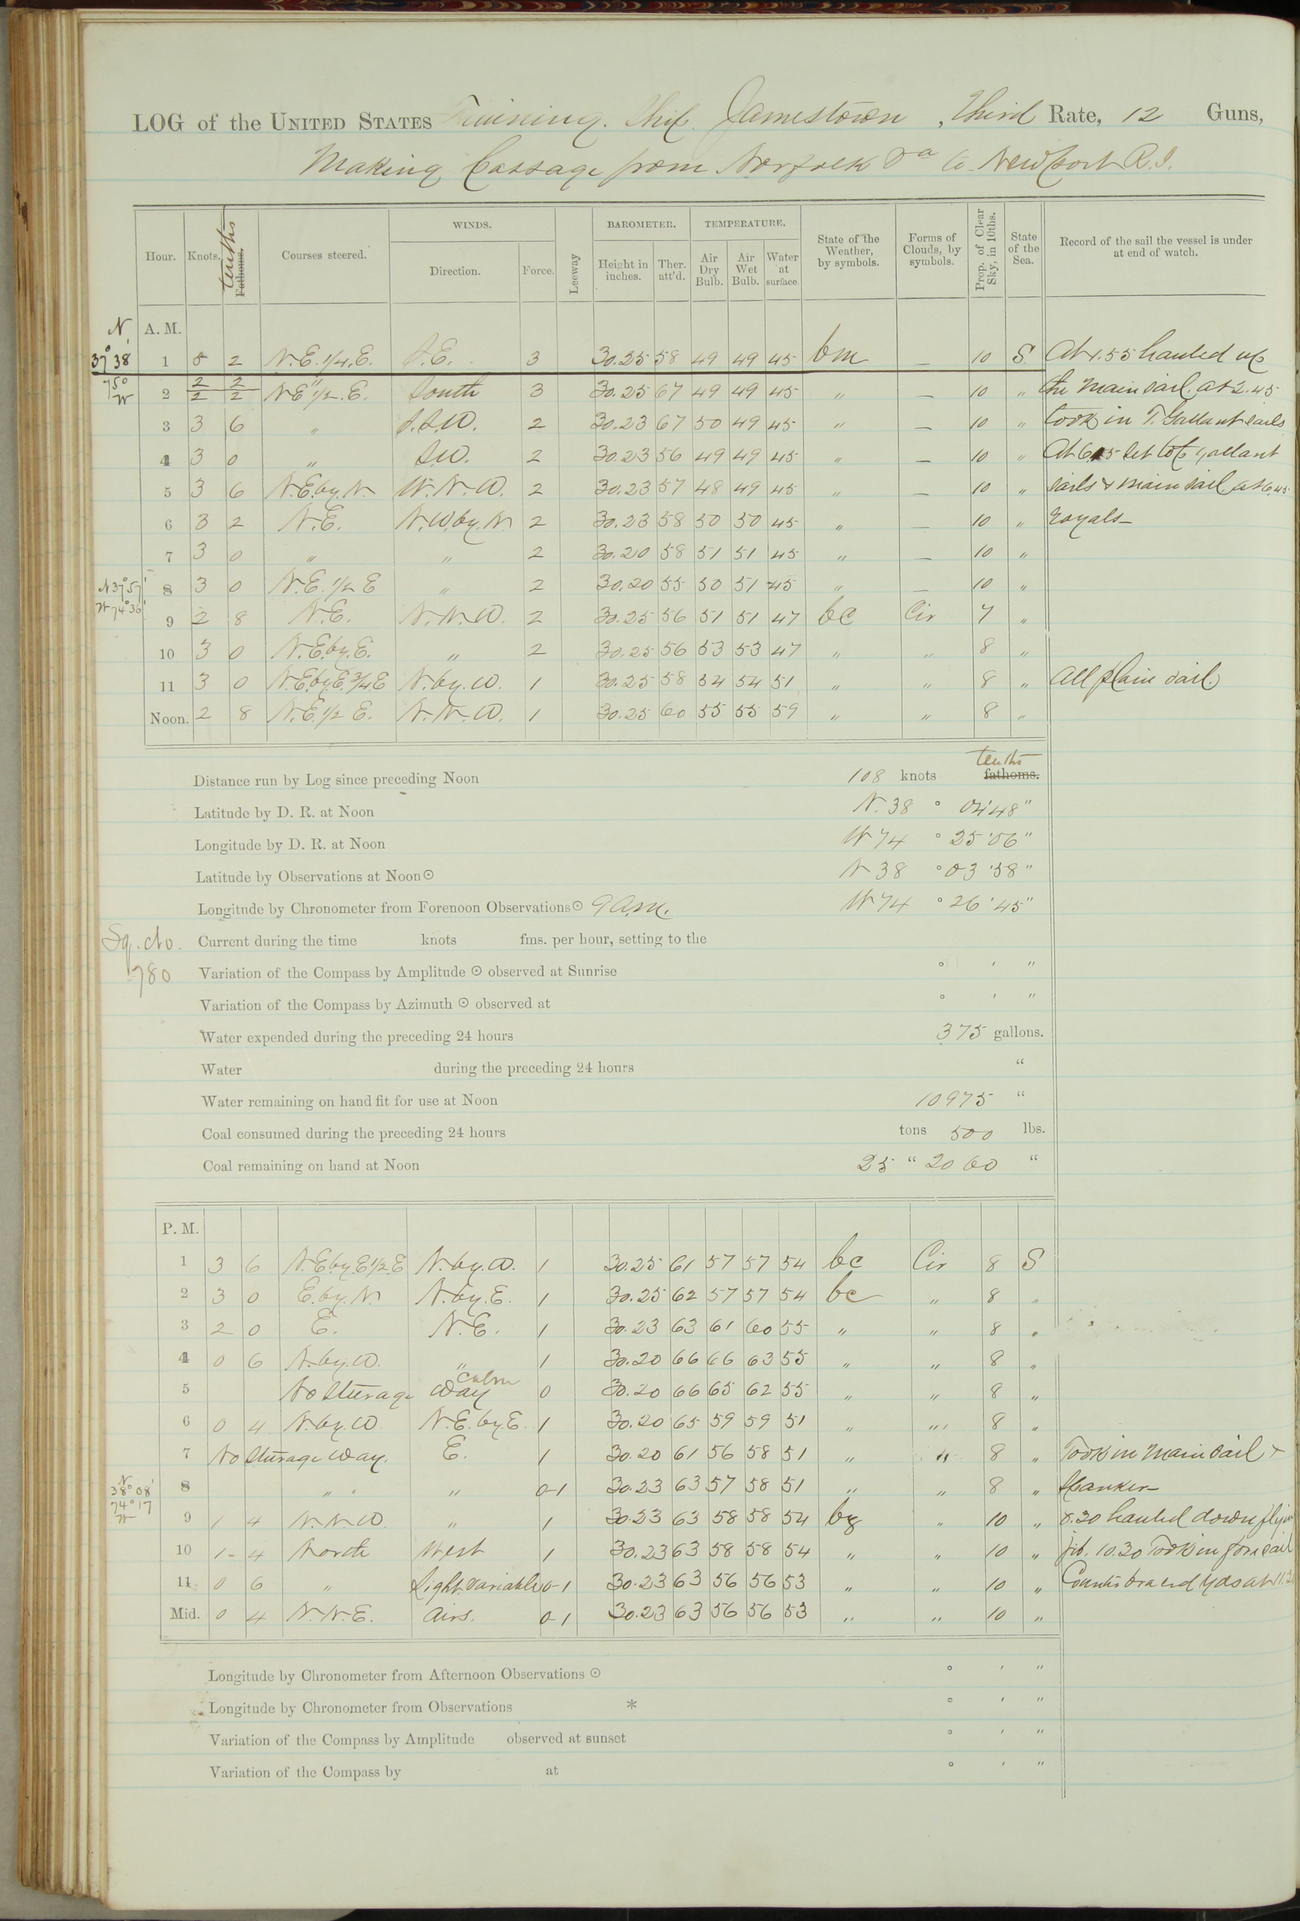 LOG of the UNITED STATES Training Ship Jamestown, Third Rate, 12 Guns,
Making Passage from Norfolk Va to Newport R.I.
Hour. Knots. tenths Fathoms. Courses steered. WINDS. Direction. Force. Leeway BAROMETER. Height in inches. Ther. att'd. TEMPERATURE. Air Dry Bulb. Air Wet Bulb. Water at surface. State of the Weather, by symbols. Forms of Clouds, by symbols. Prop. of Clear Sky, in 10ths. State of the Sea. Record of the sail the vessel is under at end of watch.
N
37° 38'
75°
W
A. M.
1 5 2 N.E. 1/4 E. S.E. 3 30.25 58 49 49 45 bm — 10 S. At 1.55 hauled up
2 2 2 2 2 N.E. 1/2 E. South 3 30.25 67 49 49 45 " — 10 " the main sail at 2.45
3 3 6 " S.S.W. 2 30.23 67 50 49 45 " — 10 " took in T. Gallant sails
4 3 0 " S.W. 2 30.23 56 49 49 45 " — 10 " At 6.15 set top gallant
5 3 6 N.E. by N. W.N.W. 2 30.23 57 48 49 45 " — 10 " sails & main sail at 6.45
6 3 2 N.E. N.W. by N 2 30.23 58 50 50 45 " — 10 " royals—
7 3 0 " " 2 30.20 58 51 51 45 " — 10 "
N 37° 57'
W 74° 36'
8 3 0 N.E. 1/2 E " 2 30.20 55 50 51 45 " — 10 "
9 2 8 N.E. N.N.W. 2 30.25 56 51 51 47 bc Cir 7 "
10 3 0 N.E. by E. " 2 30.25 56 53 53 47 " " 8 "
11 3 0 N.E. by E. 3/4 E N. by W. 1 30.25 58 54 54 51 " " 8 " All plain sail.
Noon. 2 8 N.E. 1/2 E. N.N.W. 1 30.25 60 55 55 59 " " 8 "
Distance run by Log since preceding Noon 108 knots tenths fathoms.
Latitude by D. R. at Noon N. 38 ° 04' 48"
Longitude by D. R. at Noon W 74 ° 25' 06"
Latitude by Observations at Noon ☉ N 38 ° 03' 58"
Longitude by Chronometer from Forenoon Observations ☉ 9 A.M. W 74 ° 26' 45"
Sq. No.
780
Current during the time knots fms. per hour, setting to the
Variation of the Compass by Amplitude ☉ observed at Sunrise ° ' "
Variation of the Compass by Azimuth ☉ observed at ° ' "
Water expended during the preceding 24 hours 375 gallons.
Water during the preceding 24 hours "
Water remaining on hand fit for use at Noon 10975 "
Coal consumed during the preceding 24 hours tons 500 lbs.
Coal remaining on hand at Noon 25 " 2060 "
P. M.
1 3 6 N.E. by E 1/2 E N. by W. 1 30.25 61 57 57 54 bc Cir 8 S
2 3 0 E. by N. N. by E. 1 30.25 62 57 57 54 bc " 8 "
3 2 0 E. N.E. 1 30.23 63 61 60 55 " " 8 "
4 0 6 N. by W. " 1 30.20 66 66 63 55 " " 8 "
5 No Sturage Way Calm 0 30.20 66 65 62 55 " " 8 "
6 0 4 N. by W N.E. by E. 1 30.20 65 59 59 51 " " 8 "
7 No Sturage Way. E. 1 30.20 61 56 58 51 " " 8 " Took in Main Sail &
N
38° 08'
74° 17
W
8 " " " 0-1 30.23 63 57 58 51 " " 8 " Spanker—
9 1 4 N.N.W " 1 30.23 63 58 58 54 " 10 " 8.30 hauled down flying
10 1- 4 North West 1 30.23 63 58 58 54 " " 10 " jib. 10.30 Took in fore sail
11 0 6 " Light variable 0-1 30.23 63 56 56 53 " " 10 " Counter braced yds at
Mid. 0 4 N.N.E. airs. 0-1 30.23 63 56 56 53 " " 10 "
Longitude by Chronometer from Afternoon Observations ☉ ° ' "
Longitude by Chronometer from Observations * ° ' "
Variation of the Compass by Amplitude observed at sunset ° ' "
Variation of the Compass by at ° ' "